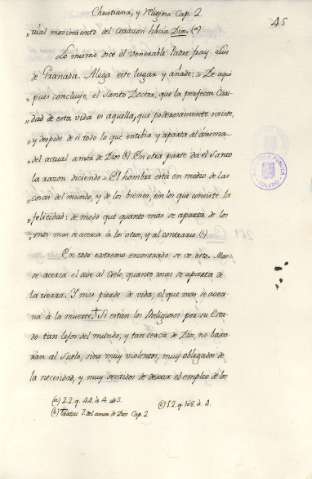 Christiana, y Religiosa Cap. 2.
45
„tual movimiento del corazon hácia Dios. (a)
Lo mismo dice el Venerable Padre fray Luis
de Granada. Alega este lugar y añade: „De aqui
„pues concluye el Santo Doctor, que la perfecta Cari-
„dad de esta vida es aquella, que
„y despide de si todo lo que entibia y aparta al ánima
„del actual amor de Dios (b). En otra parte da el Santo
la razon diciendo: El hombre está en medio de las
cosas del mundo, y de los bienes, en los que consiste la
felicidad: de modo que quanto más se aparta de los
unos mas se acerca á los otros, y al contrario. (c)
En dos extremos encontrados se ve esto. Mas
se acerca el ave al Cielo, quanto mas se aparta de
la tierra. Y mas pierde de vida, el que mas se acer-
ca á la muerte. Si están los Religiosos por su Esta-
do tan lejos del mundo, y tan cerca de Dios, no baxa-
rían al suelo, sino muy violentos, muy obligados de
la necesidad, y muy de dexar el empleo de los
(a) 2.2. q. 44. á. 4. ad 3.
(b) Tratado 7. del amor de Dios Cap. 2
(c) 1.2. q. 108. á. 4.